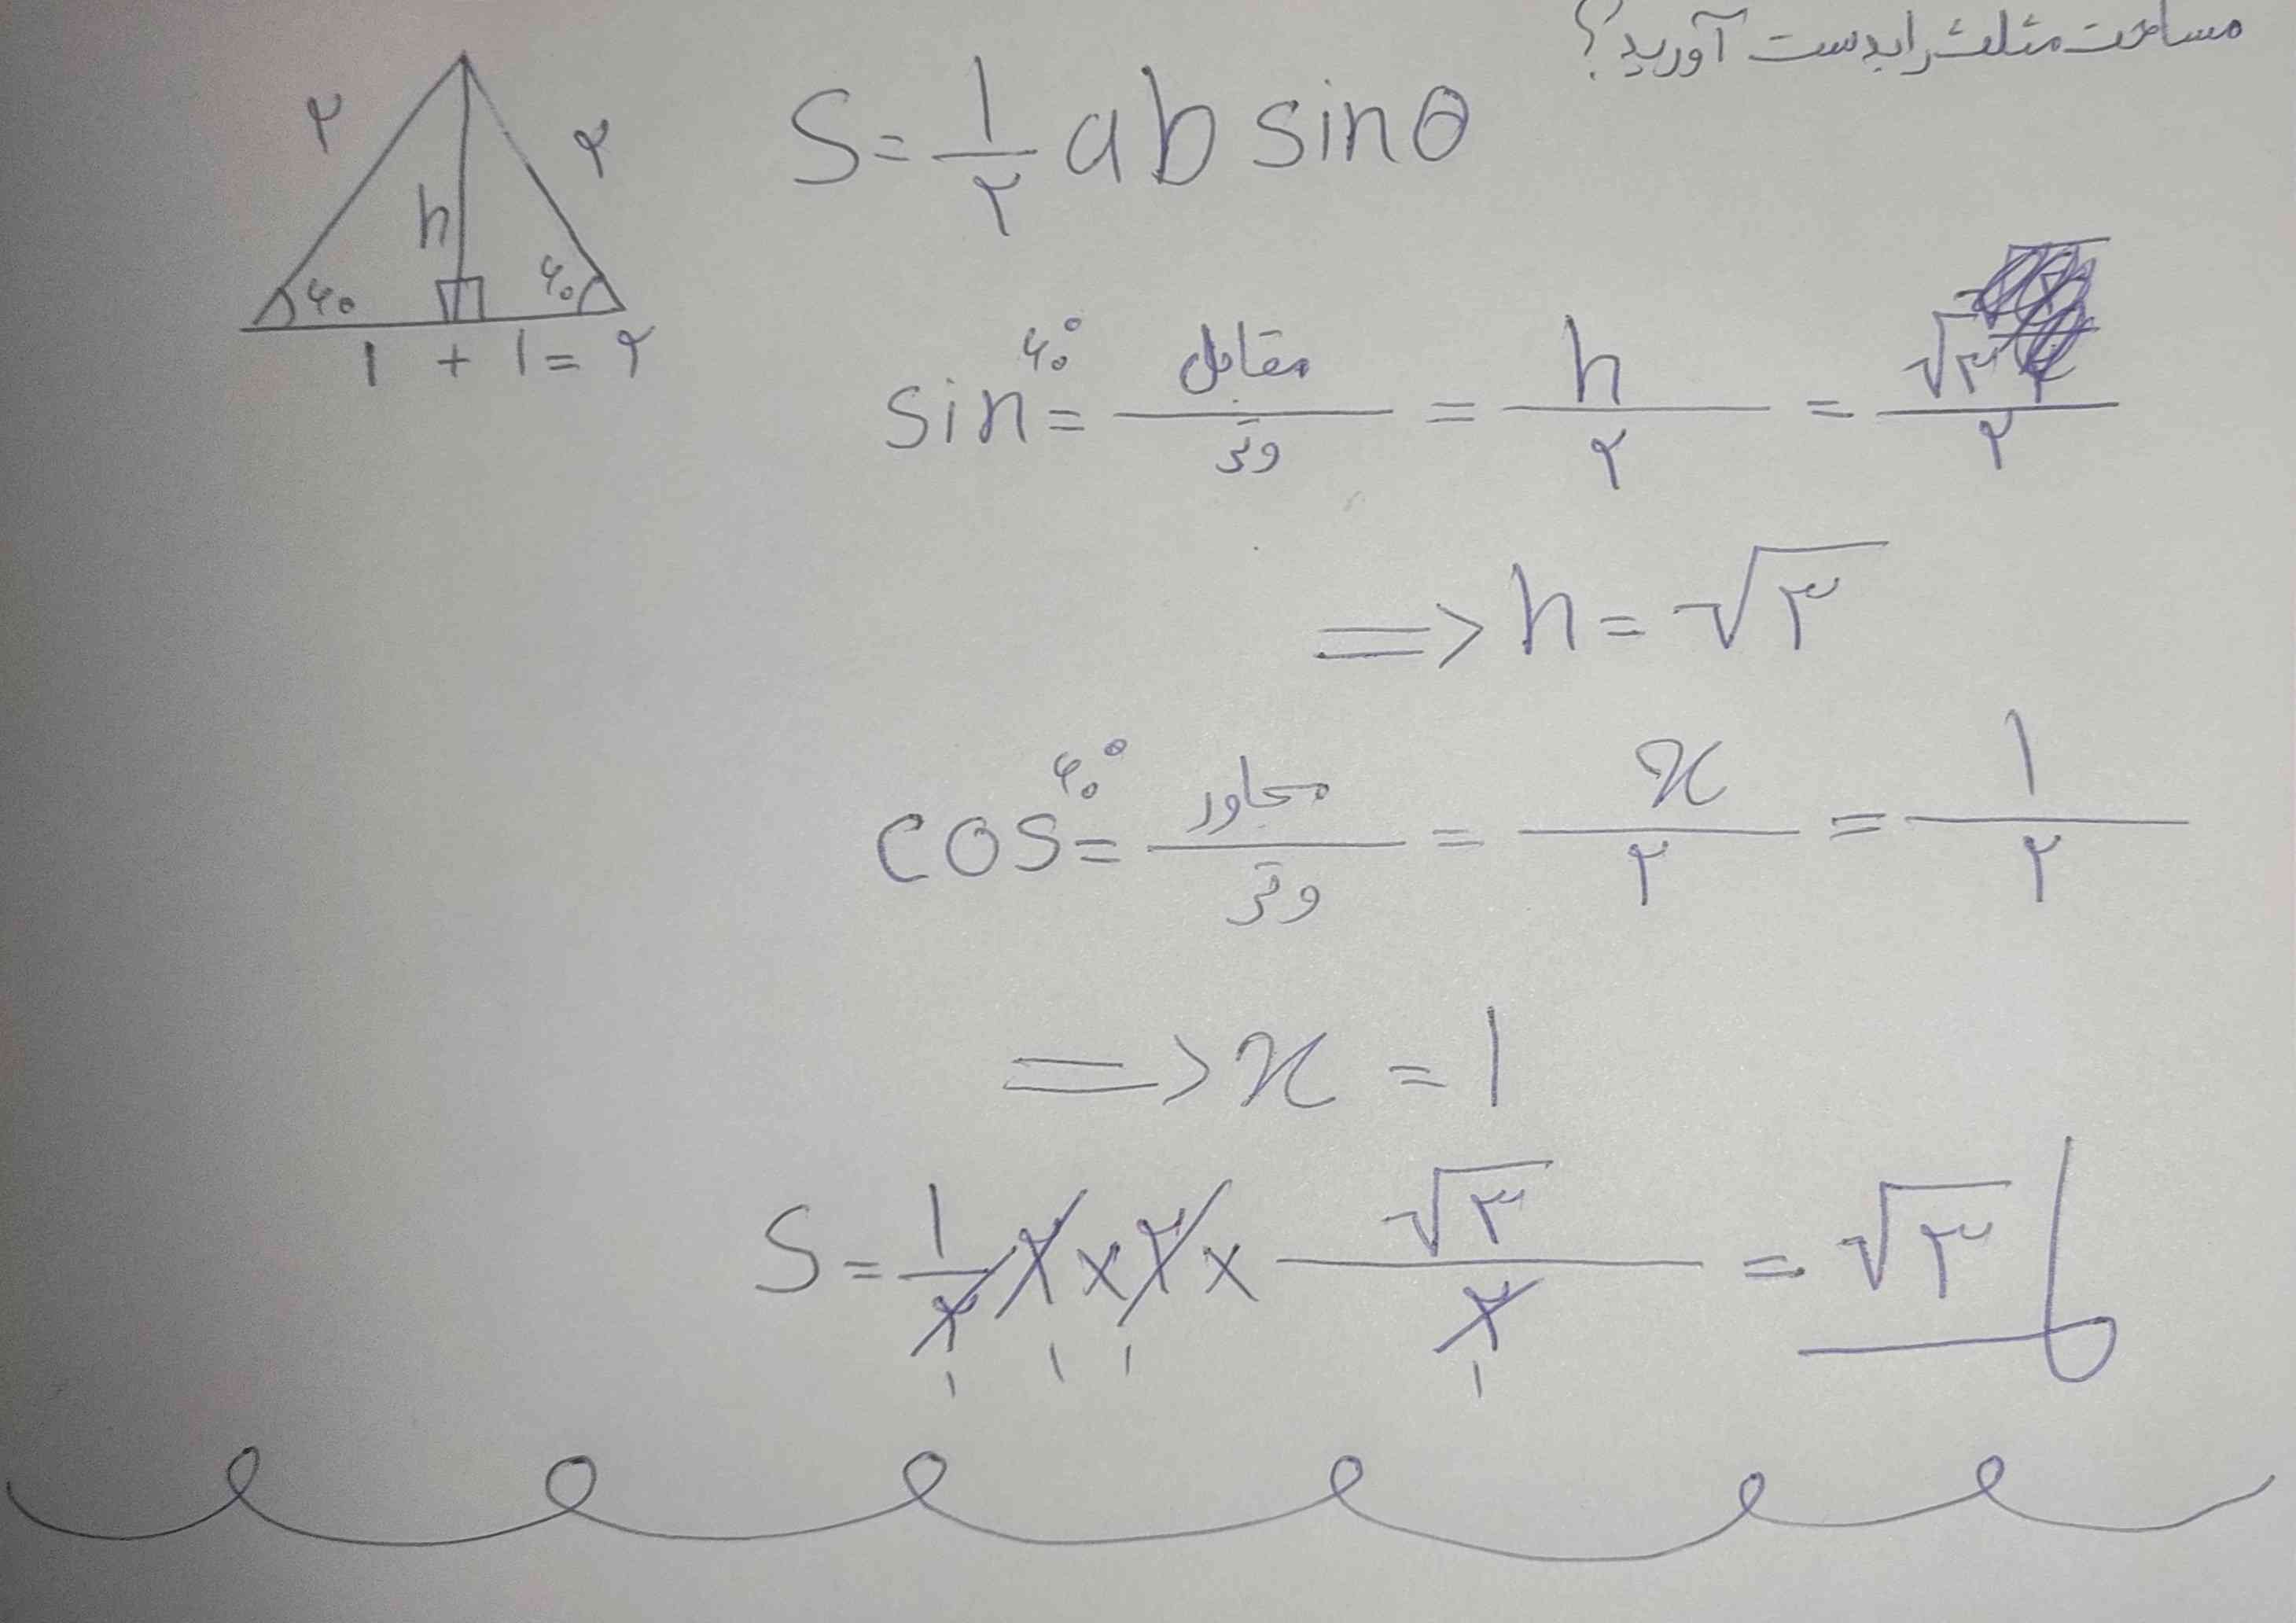 مساحت مثلث را بدست آورید؟
S = ۱/۲ ab sinθ
۲ ۲
h
۶۰ ۶۰
۱ + ۱ = ۲
sin ۶۰° = مقابل/وتر = h/۲ = √۳/۲
=> h = √۳
cos ۶۰° = مجاور/وتر = x/۲ = ۱/۲
=> x = ۱
S = ۱/۲ ۲ × ۲ × √۳/۲ = √۳
۱ ۱ ۱ ۱